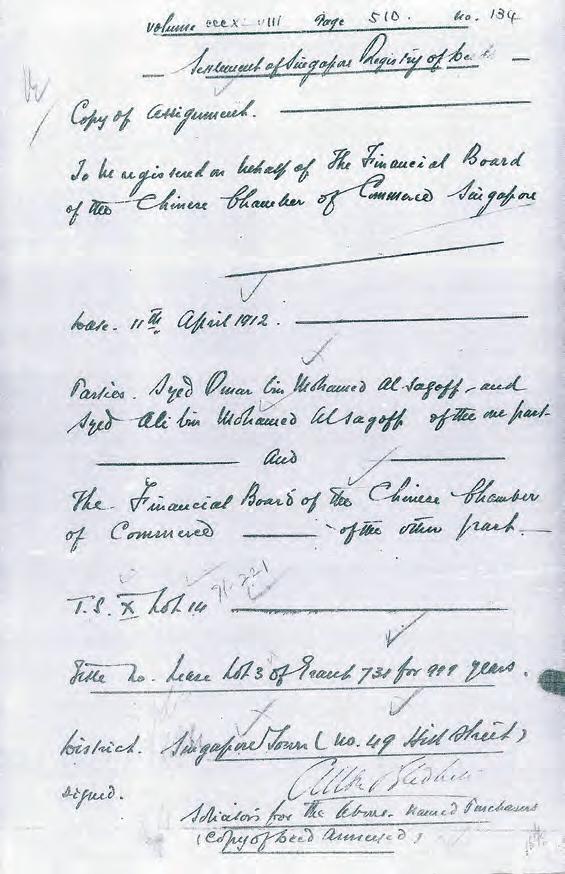 Volume Page 510. No. 134
Settlement of Singapore Registry of
Copy of Assignment.
To be registered on behalf of The Financial Board
of the Chinese Chamber of Commerce Singapore
Date. 11th April 1912.
Parties. Syed Omar bin Mohamed Alsagoff and
Syed Ali bin Mohamed Alsagoff of the one part
And
The Financial Board of the Chinese Chamber
of Commerce of the other part
T.S. X Lot 14
Title No. Lease Lot 3 of Grant for 999 years.
District. Singapore Town (No. 49 Hill Street)
Signed.
Solicitors for the Above-named Purchasers
(Copy of Deed Annexed)